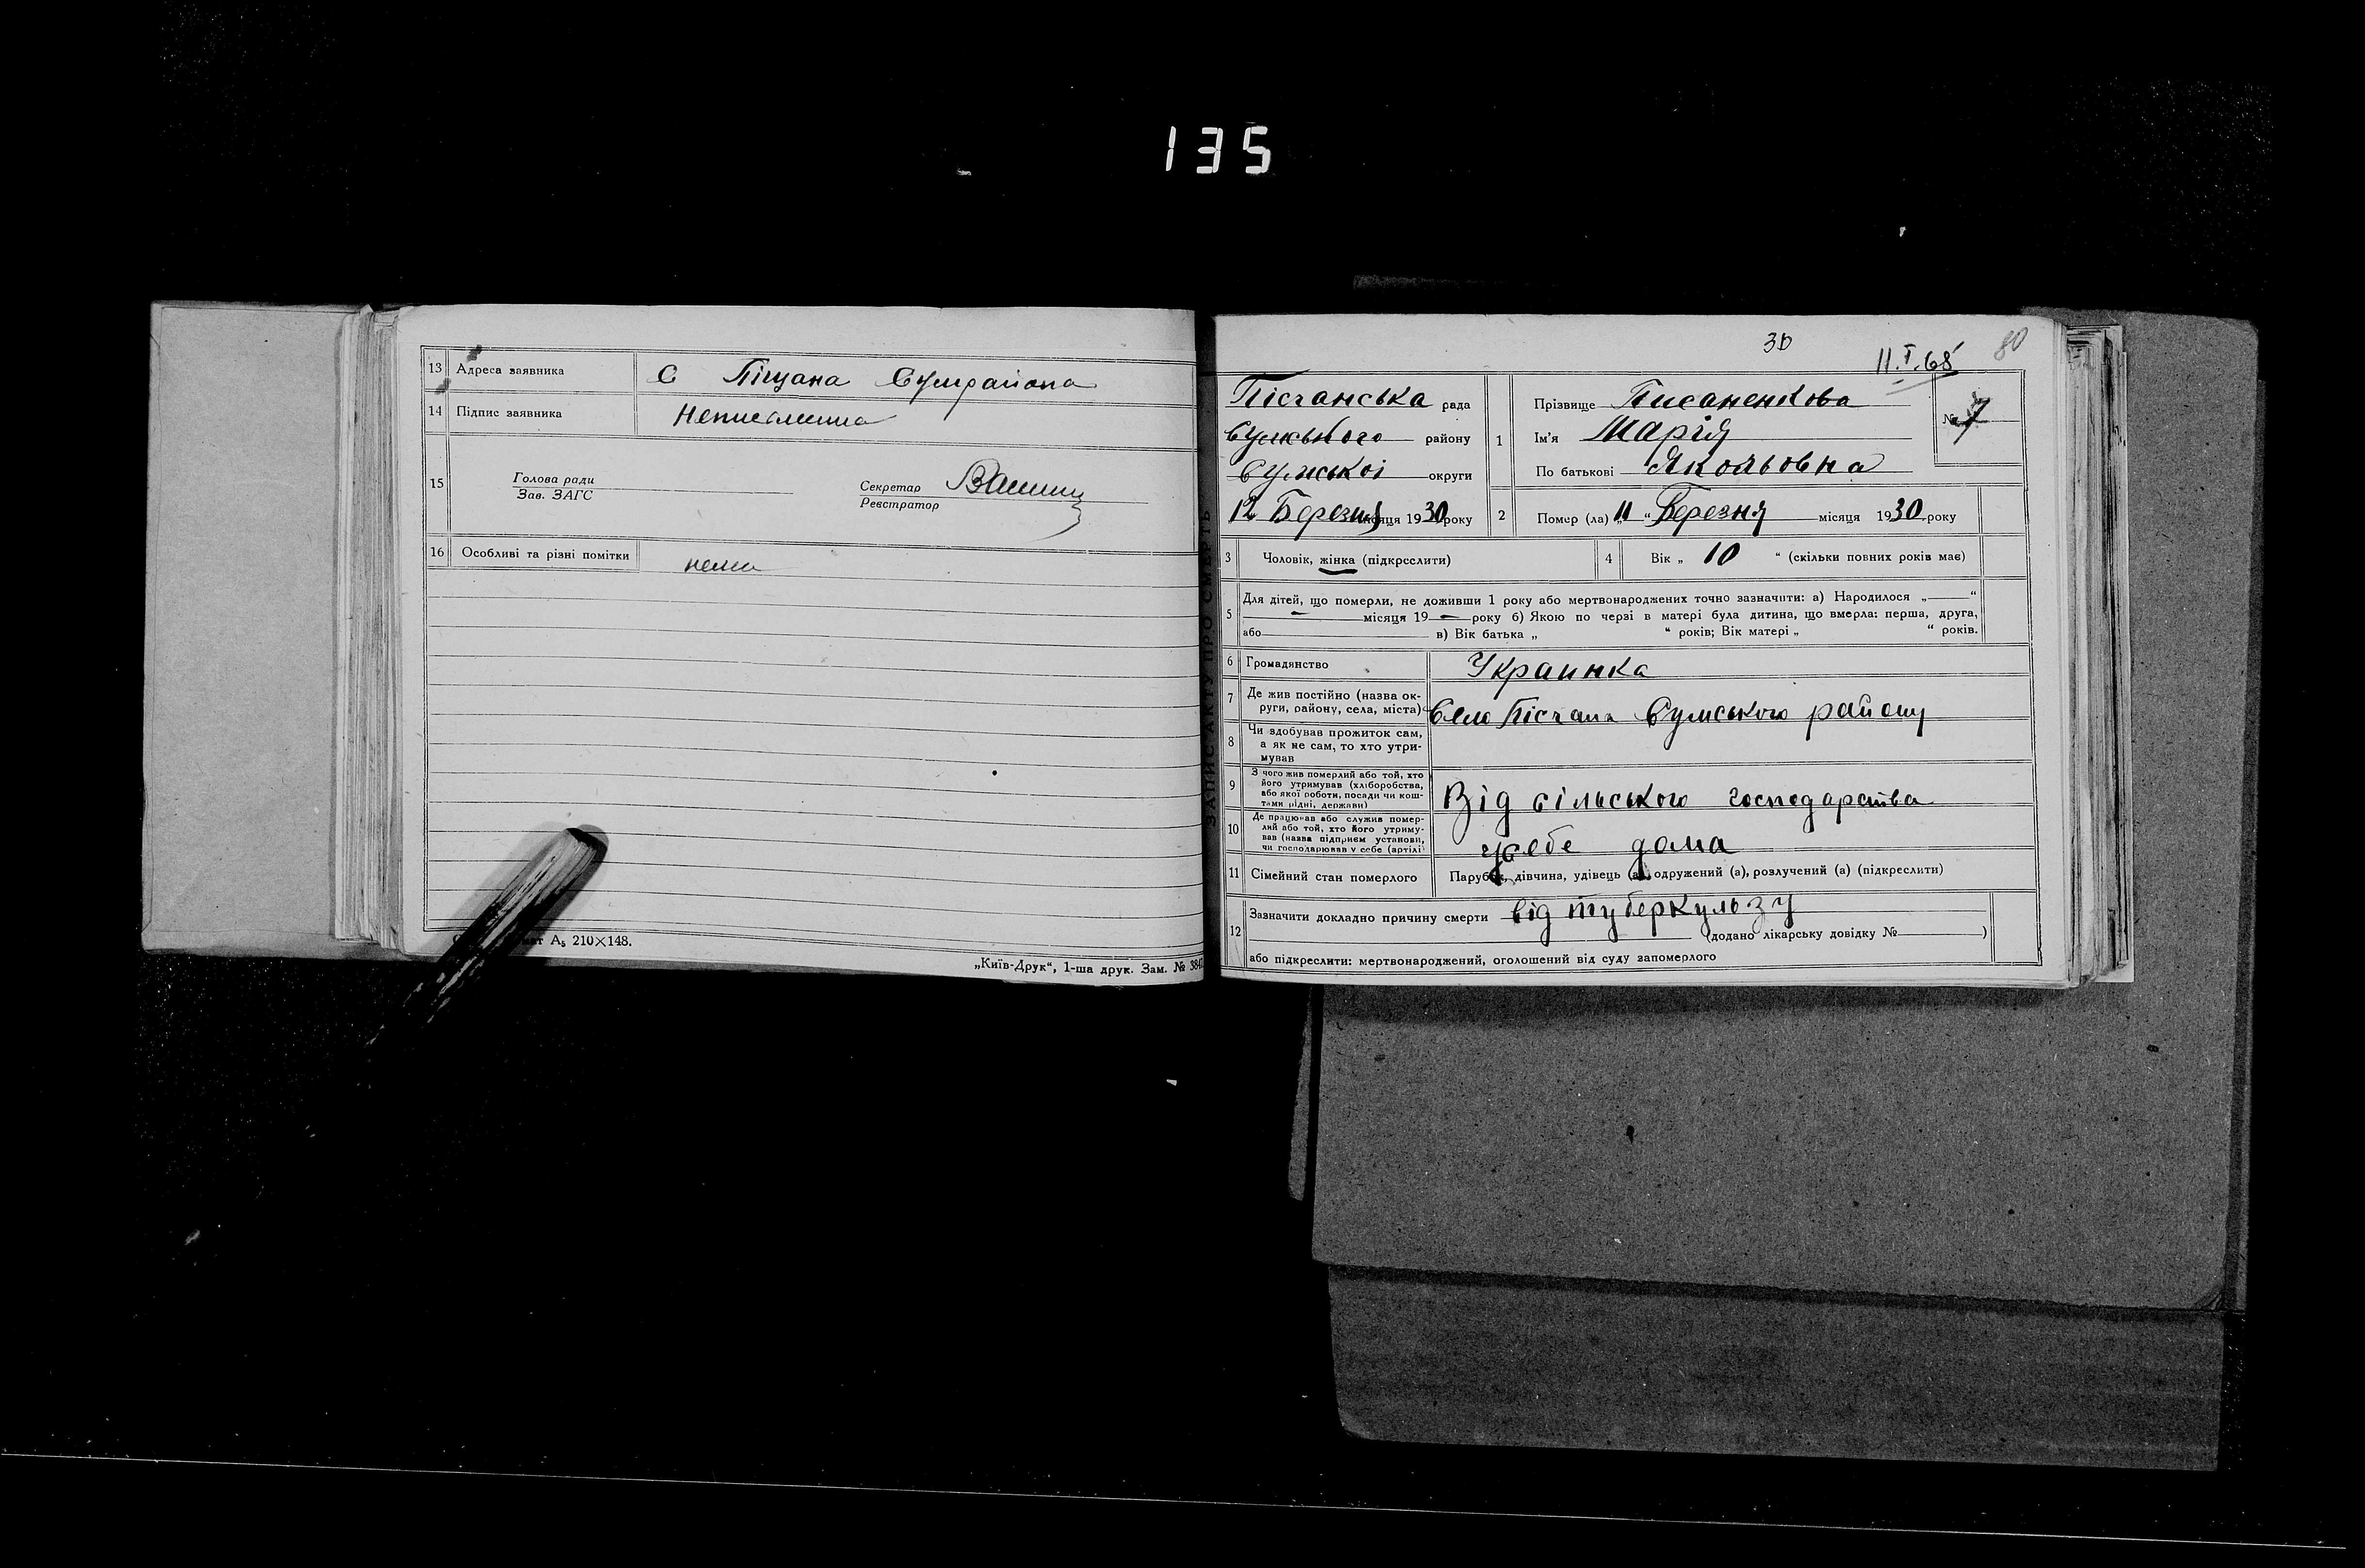 135
13 Адреса заявника С Піщана Сумрайона
14 Підпис заявника Неписьмена
15 Голова ради
Зав. ЗАГС
Секретар
Реєстратор
16 Особливі та різні помітки нема
А₅ 210×148.
„Київ-Друк“, 1-ша друк. Зам. №
30
11.I.68
80
ЗАПИС АКТУ ПРО СМЕРТЬ
Пісчанська рада
Сумського району
Сумськоі округи
12 Березня місяця 1930 року
1 Прізвище Писаненкова
Ім’я Марія
По батькові Яковьовна
№ 7
2 Помер (ла) „11“ Березня місяця 1930 року
3 Чоловік, жінка (підкреслити)
4 Вік „ 10 “ (скільки повних років має)
5 Для дітей, що померли, не доживши 1 року або мертвонароджених точно зазначити: а) Народилося „—“
— місяця 19 — року б) Якою по черзі в матері була дитина, що вмерла: перша, друга,
або в) Вік батька „ “ років; Вік матері „ “ років.
6 Громадянство Украинка
7 Де жив постійно (назва ок-
руги, району, села, міста) Село Пісчана Сумського району
8 Чи здобував прожиток сам,
а як не сам, то хто утри-
мував
9 З чого жив померлий або той, хто
його утримував (хліборобства,
або якої роботи, посади чи кош-
тами рідні, держави) Від сільського господарства
10 Де працював або служив помер-
лий або той, хто його утриму-
вав (назва підприєм установи,
чи господарював у себе (артілі) усебе дома
11 Сімейний стан померлого Парубок, дівчина, удівець (а), одружений (а), розлучений (а) (підкреслити)
12 Зазначити докладно причину смерти від туберкульзу
(додано лікарську довідку № )
або підкреслити: мертвонароджений, оголошений від суду запомерлого